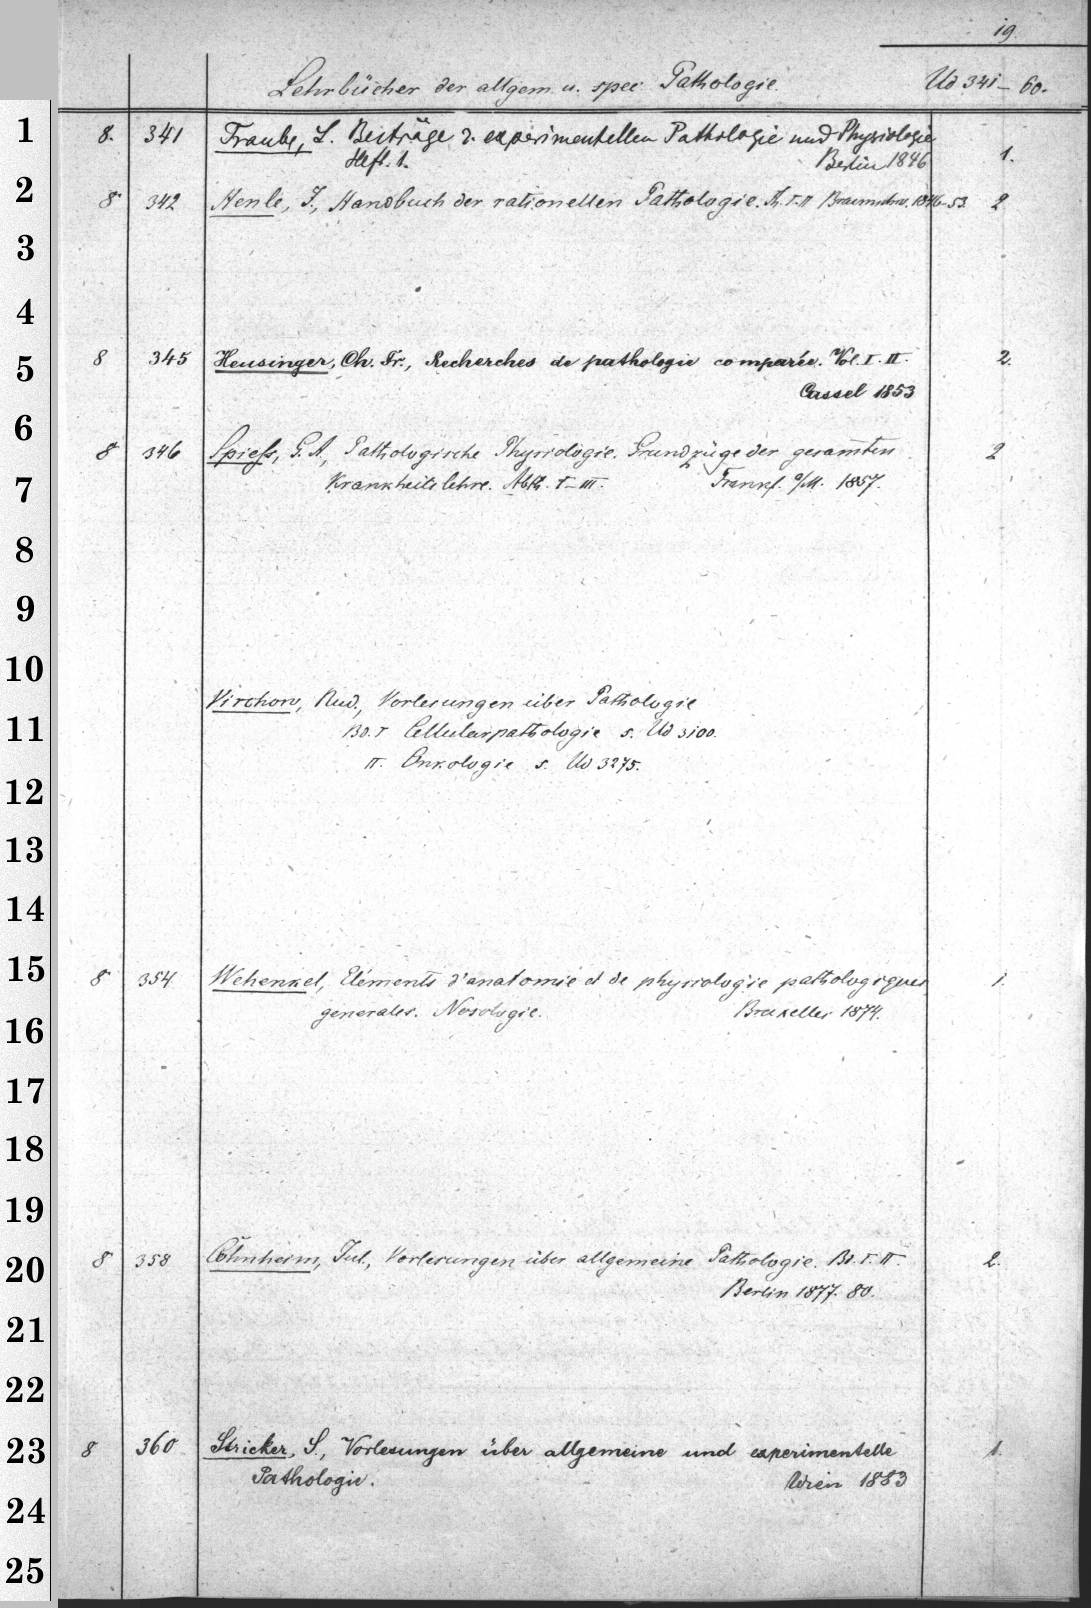 19
Lehrbücher der allgem. u. spec. Pathologie. Ud 341-60.
1 8. 341 Traube, L. Beiträge z. experimentellen Pathologie und Physiologie
Heft. 1. Berlin 1846 1.
2 8 342 Henle, J., Handbuch der rationellen Pathologie. Th. I-II Braunschw. 1846-53. 2
3
4
5 8 345 Heusinger, Ch. Fr., Recherches de pathologie comparée. Vol. I. II. 2.
Cassel 1853
6 8 346 Spiess, G. A., Pathologische Physiologie. Grundzüge der gesamten 2
7 Krankheitslehre. Abth. I-III. Frankf. a/M. 1857.
8
9
10
Virchow, Rud., Vorlesungen über Pathologie
11 Bd. I Cellularpathologie s. Ud 3100.
II. Onkologie s. Ud 3275.
12
13
14
15 8 354 Wehenkel, Eléments d'anatomie et de physiologie pathologiques 1.
16 generales. Nosologie. Bruxelles 1874.
17
18
19
20 8 358 Cohnheim, Jul., Vorlesungen über allgemeine Pathologie. Bd. I. II. 2.
Berlin 1877. 80.
21
22
23 8 360 Stricker, S., Vorlesungen über allgemeine und experimentelle 1.
Pathologie. Wien 1883
24
25